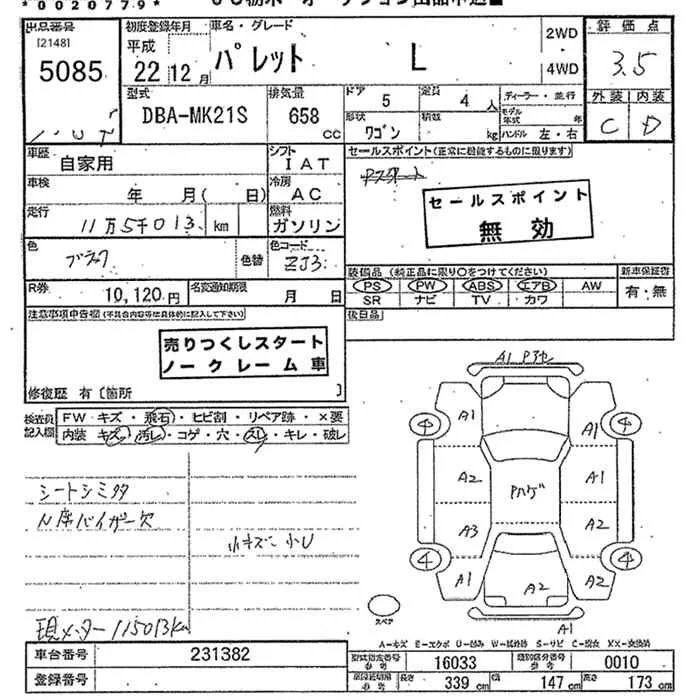 *0020779*
出品番号
[2148]
5085
初度登録年月
平成
22 12月
車名・グレード
パレット L
2WD
4WD
評価点
3.5
外装 内装
C D
型式
DBA-MK21S
排気量
658
cc
ドア
5
定員
4 人
形状
ワゴン
積載
kg
ディーラー・並行
モデル年式 年
ハンドル 左・右
車歴
自家用
シフト
IAT
車検
年 月( 日)
冷房
AC
走行
11万5千013 km
燃料
ガソリン
色
ブラック
色替
色コード
ZJ3
セールスポイント(正常に機能するものに限ります)
セールスポイント
無効
装備品(純正品に限り○をつけてください)
PS PW ABS エアB AW
SR ナビ TV カワ
新車保証書
有・無
R券
10,120円
名変通知期限
月 日
後日品
注意事項申告欄(不具合内容等は具体的に記入して下さい)
売りつくしスタート
ノークレーム車
修復歴 有〔箇所 〕
検査員記入欄
FW キズ・飛石・ヒビ割・リペア跡・×要
内装 キズ・汚レ・コゲ・穴・スレ・キレ・破レ
シートシミタタ
N席バイザー欠
小キズ小U
現メーター115013km
A1
A1 A1
4 4
A2 A1
Pハゲ
A3 A2
4 4
A1 A2 A2
A1
スペア
A=キズ E=エクボ U=凹み W=補修跡 S=サビ C=腐食 XX=交換済
車台番号
231382
登録番号
型式指定番号
参考
16033
類別区分番号
参考
0010
参考
長さ 339 cm
巾 147 cm
高さ 173 cm